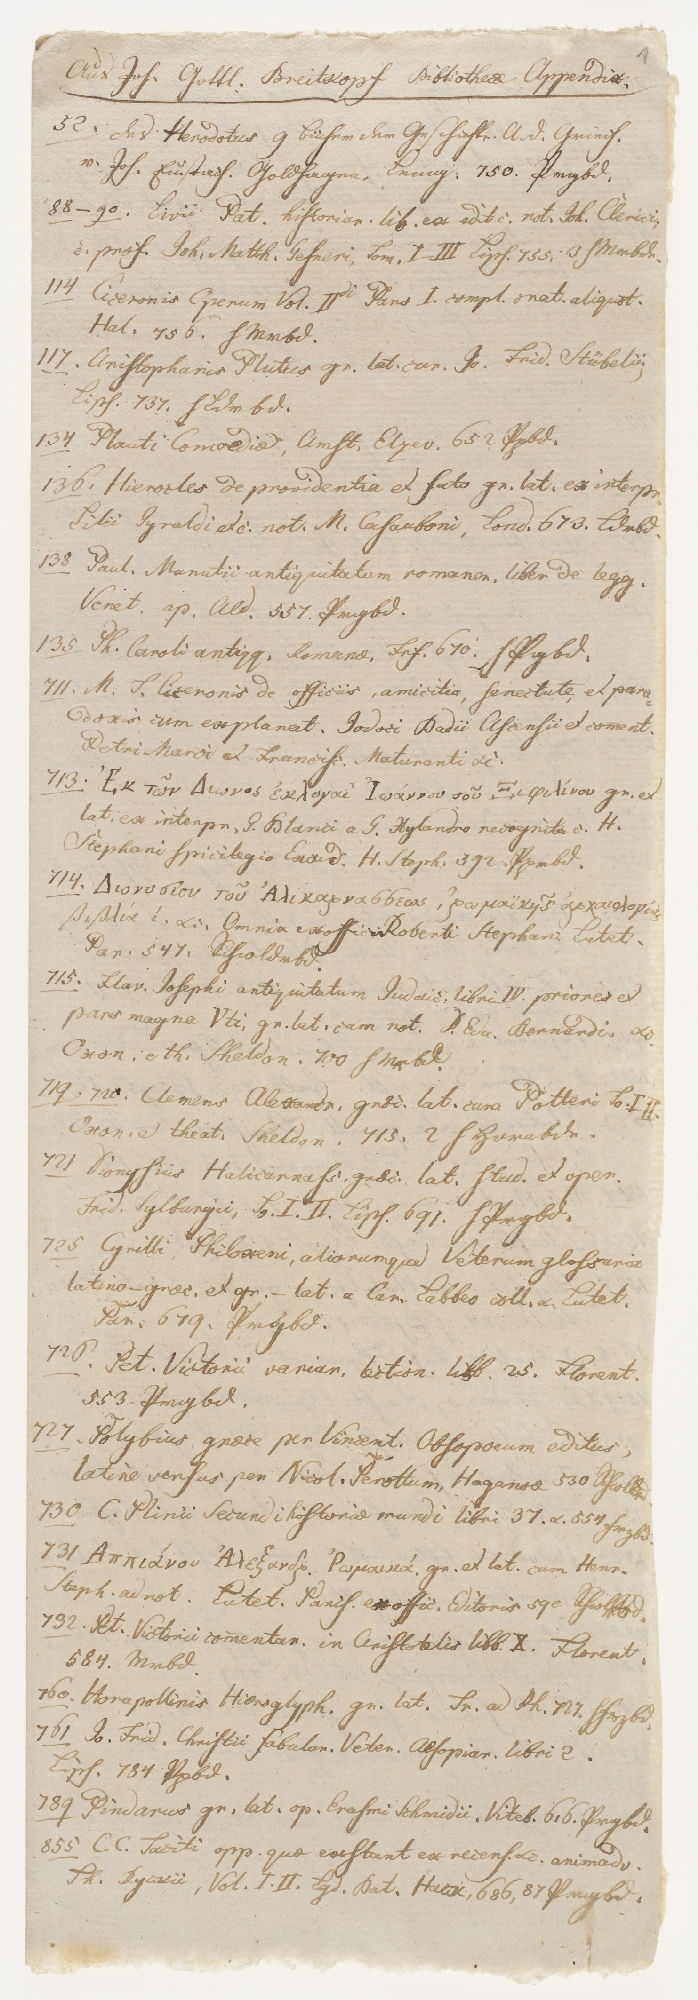 Aus Joh. Gottl. Breitkopf Bibliothecæ Appendix.
52. des Herodotus 9 bücher der Geschichte. A. d. Griech.
v. Joh. Eustach. Goldhagen. Lemg. 750. Prngbd.
88–90. Livii Pat. historiar. lib. ex edit. c. not. Joh. Clerici,
c. præf. Joh. Matth. Gesneri, Tom. I–III Lips. 755. 3
114 Ciceronis Operum Vol. II di Pars I. compl. orat. aliquot.
Hal. 756.
117. Aristophanis Plutus gr. lat. cur. Jo. Frid. Stübelii,
Lips. 737.
134 Plauti Comœdiæ, Amst. Elzev. 652 Ppbd.
136. Hierocles de providentia et fato gr. lat. ex interpr.
Lilii Gyraldi etc. not. M. Casauboni, Lond. 673. Ldrbd.
138 Paul. Manutii antiquitatum romanor. liber de legg.
Venet. ap. Ald. 557. Prngbd.
135 Ph. Caroli antiqq. Romanæ. Frf. 670.
711. M. T. Ciceronis de officiis, amicitia, senectute, et para-
doxis cum explanat. Jodoci Badii Ascensii et coment.
Petri Marsi et Francisc. Maturanti &c.
713. Ἐκ τῶν Διωνος ἐκλογαὶ Ἰωάννου τοῦ Ξιφιλίνου gr. et
lat. ex interpr. G. Blanci a G. Xylandro recognita c. H.
Stephani spicilegio Excud. H. Steph. 592. Ppmbd.
714. Διωνυσίου τοῦ Ἁλικαρναββεως, ῥωμαϊκῆς ἀρχαιολογίας
βιβλία ί. &c. Omnia ex offici Roberti Stephani Lutet.
Par. 547.
715. Flav. Josephi antiquitatum Judaic. libri IV. priores et
pars magna Vti, gr. lat. cum not. D. Edu. Bernardi. &c.
Oxon. e th. Sheldon. 700
719. 720. Clemens Alexandr. græc. lat. cura Potteri To. I II.
Oxon. e theat. Sheldon. 715. 2
721 Dionysius Halicarnass. græc. lat. stud. et oper.
Frid. Sylburgii, To. I. II. Lips. 691.
725 Cyrilli, Philoxeni, aliorumque Veterum glossaria
latino–græc. et gr.–lat. a Car. Labbeo coll. &. Lutet.
Par. 679. Prngbd.
726. Pet. Victorii variar. lection. libb. 25. Florent.
553 Prngbd.
727. Polybius græce per Vincent. Obsopoeum editus,
latine versus per Nicol. Perottum, Haganoæ 530
730 C. Plinii Secundi historiæ mundi libri 37. &. 554
731 Αππιάνου Ἀλεξανδρ. Ῥωμαικά. gr. et lat. cum Henr.
Steph. adnot. Lutet. Paris. ex offic. Editoris 592
732. Pet. Victorii comentar. in Aristotelis libb. X. Florent.
584. Mrnbd.
760. Horapollinis Hieroglyph. gr. lat. Tr. ad Rh. 727.
761 Jo. Frid. Christii fabular. Veter. Aesopiar. libri 2.
Lips. 784 Ppbd.
789 Pindarus gr. lat. op. Erasmi Schmidii. Viteb. 616. Prngbd.
855 C. C. Taciti opp. quæ exstant ex recens. &c. animadv.
Th. Ryckii, Vol. I. II. Lgd. Bat. Hack, 686, 87 Prngbd.